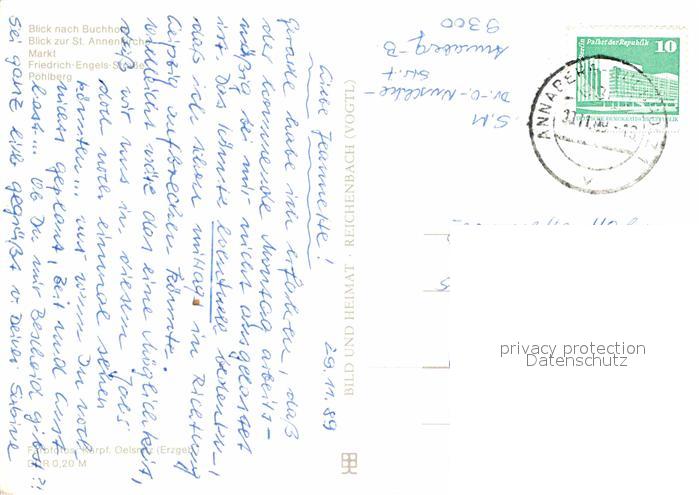 Blick nach Buchholz
Blick zur St. Annenkirche
Markt
Friedrich-Engels-Straße
Pöhlberg
Liebe Jeannette!
29.11.89
Gerade habe ich erfahren, daß
der kommende Montag arbeits-
mäßig bei mir nicht ausgelastet
ist. Das könnte eventuell bedeuten,
daß ich schon mittag in Richtung
Leipzig aufbrechen könnte.
Vielleicht wäre das eine Möglichkeit,
daß wir uns in diesem Jahr
doch noch einmal sehen
könnten... nur wenn Du noch
nichts geplant, Zeit und Lust
hast... Ob Du mir Bescheid gibst?!
Sei ganz lieb gegrüßt v. Deiner Sabine
Farbfotos: Karpf, Oelsnitz (Erzgeb.)
DDR 0,20 M
BILD UND HEIMAT · REICHENBACH (VOGTL)
S.M
Dr.-O.-Nuschke-
Str. 7
Annaberg-B.
9300
Berlin, Palast der Republik
10
DEUTSCHE DEMOKRATISCHE REPUBLIK
ANNABERG
privacy protection
Datenschutz